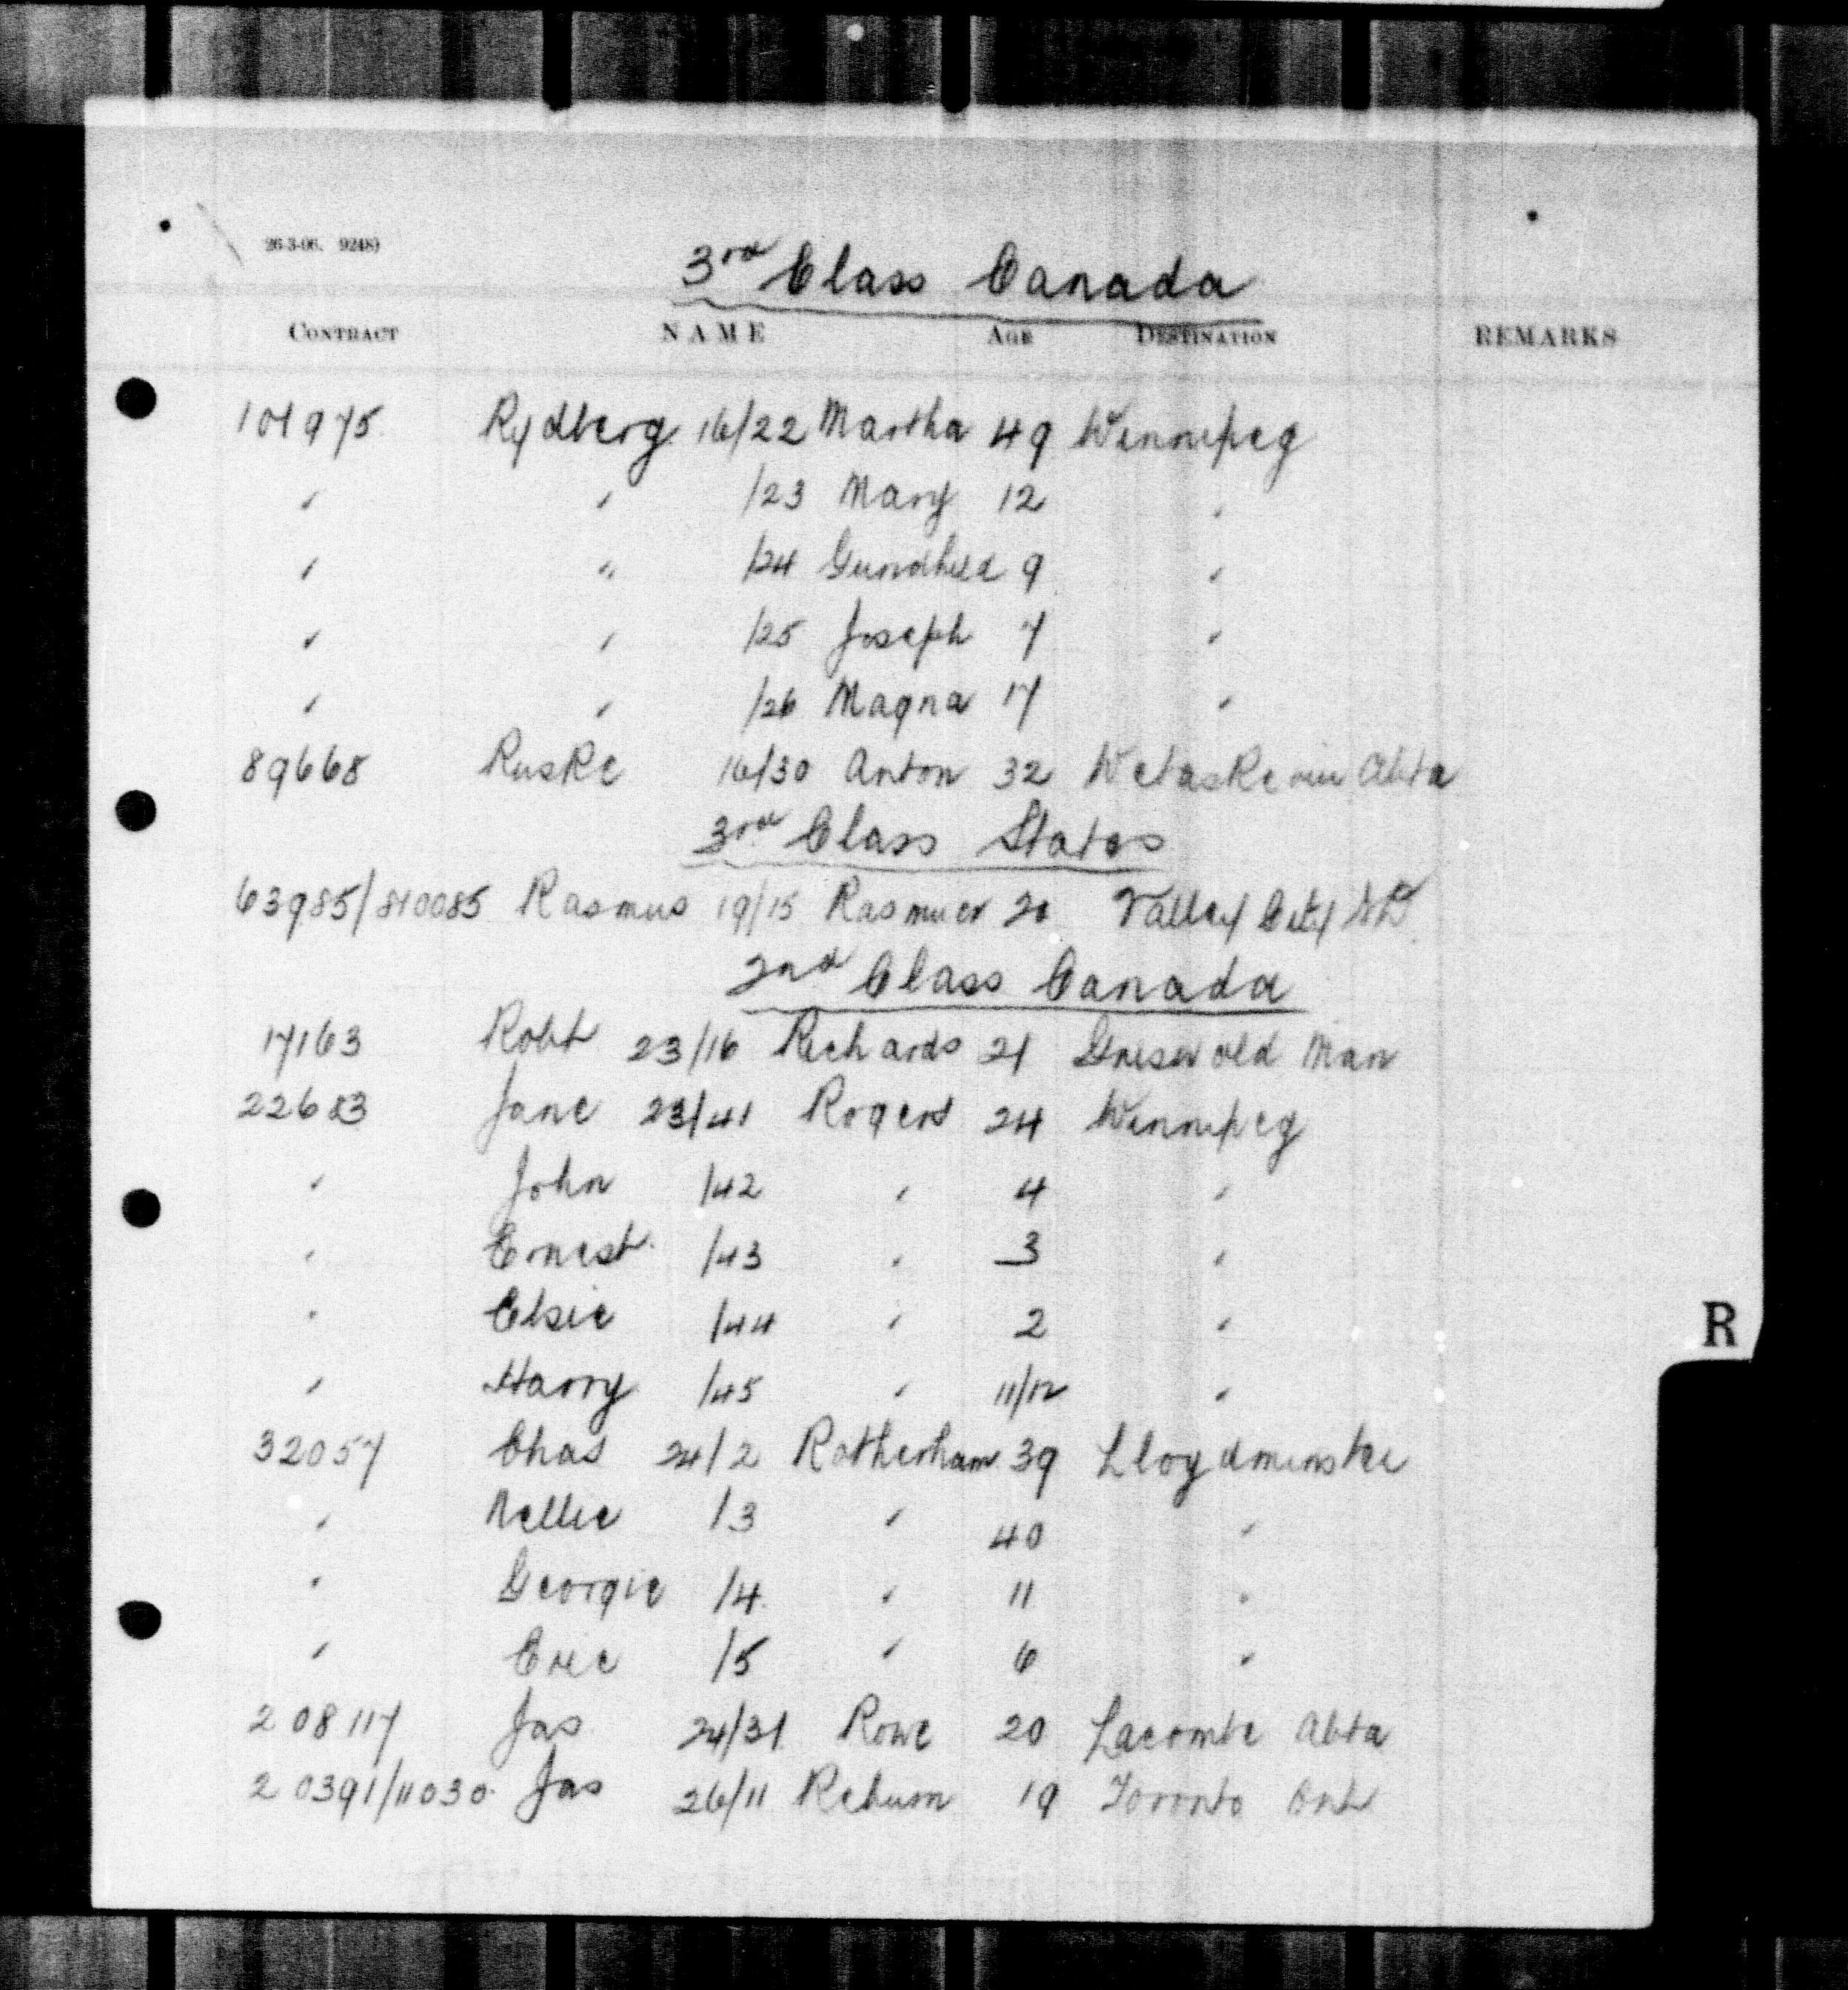 26-3-06. 9248)
3rd Class Canada
CONTRACT NAME AGE DESTINATION REMARKS
101975 Rydberg 16/22 Martha 49 Winnipeg
" " /23 Mary 12 "
" " /24 Gundhild 9 "
" " /25 Joseph 7 "
" " /26 Magna 17 "
89668 Ruske 16/30 Anton 32 Wetaskewin Abta
3rd Class States
63985/810085 Rasmus 19/15 Valley City ND
2nd Class Canada
17163 Robt 23/16 Richards 21 Griswold Man
22683 Jane 23/41 Rogers 24 Winnipeg
" John /42 " 4 "
" Ernest /43 " 3 "
" Elsie /44 " 2 "
" Harry /45 " 11/12 "
32057 Chas 24/2 Rotherham 39
" Nellie /3 " 40 "
" Georgie /4 " 11 "
" Eric /5 " 6 "
R
208117 Jas 24/31 Rowe 20 Lacombe Abta
20391/11030 Jas 26/11 19 Toronto Ont